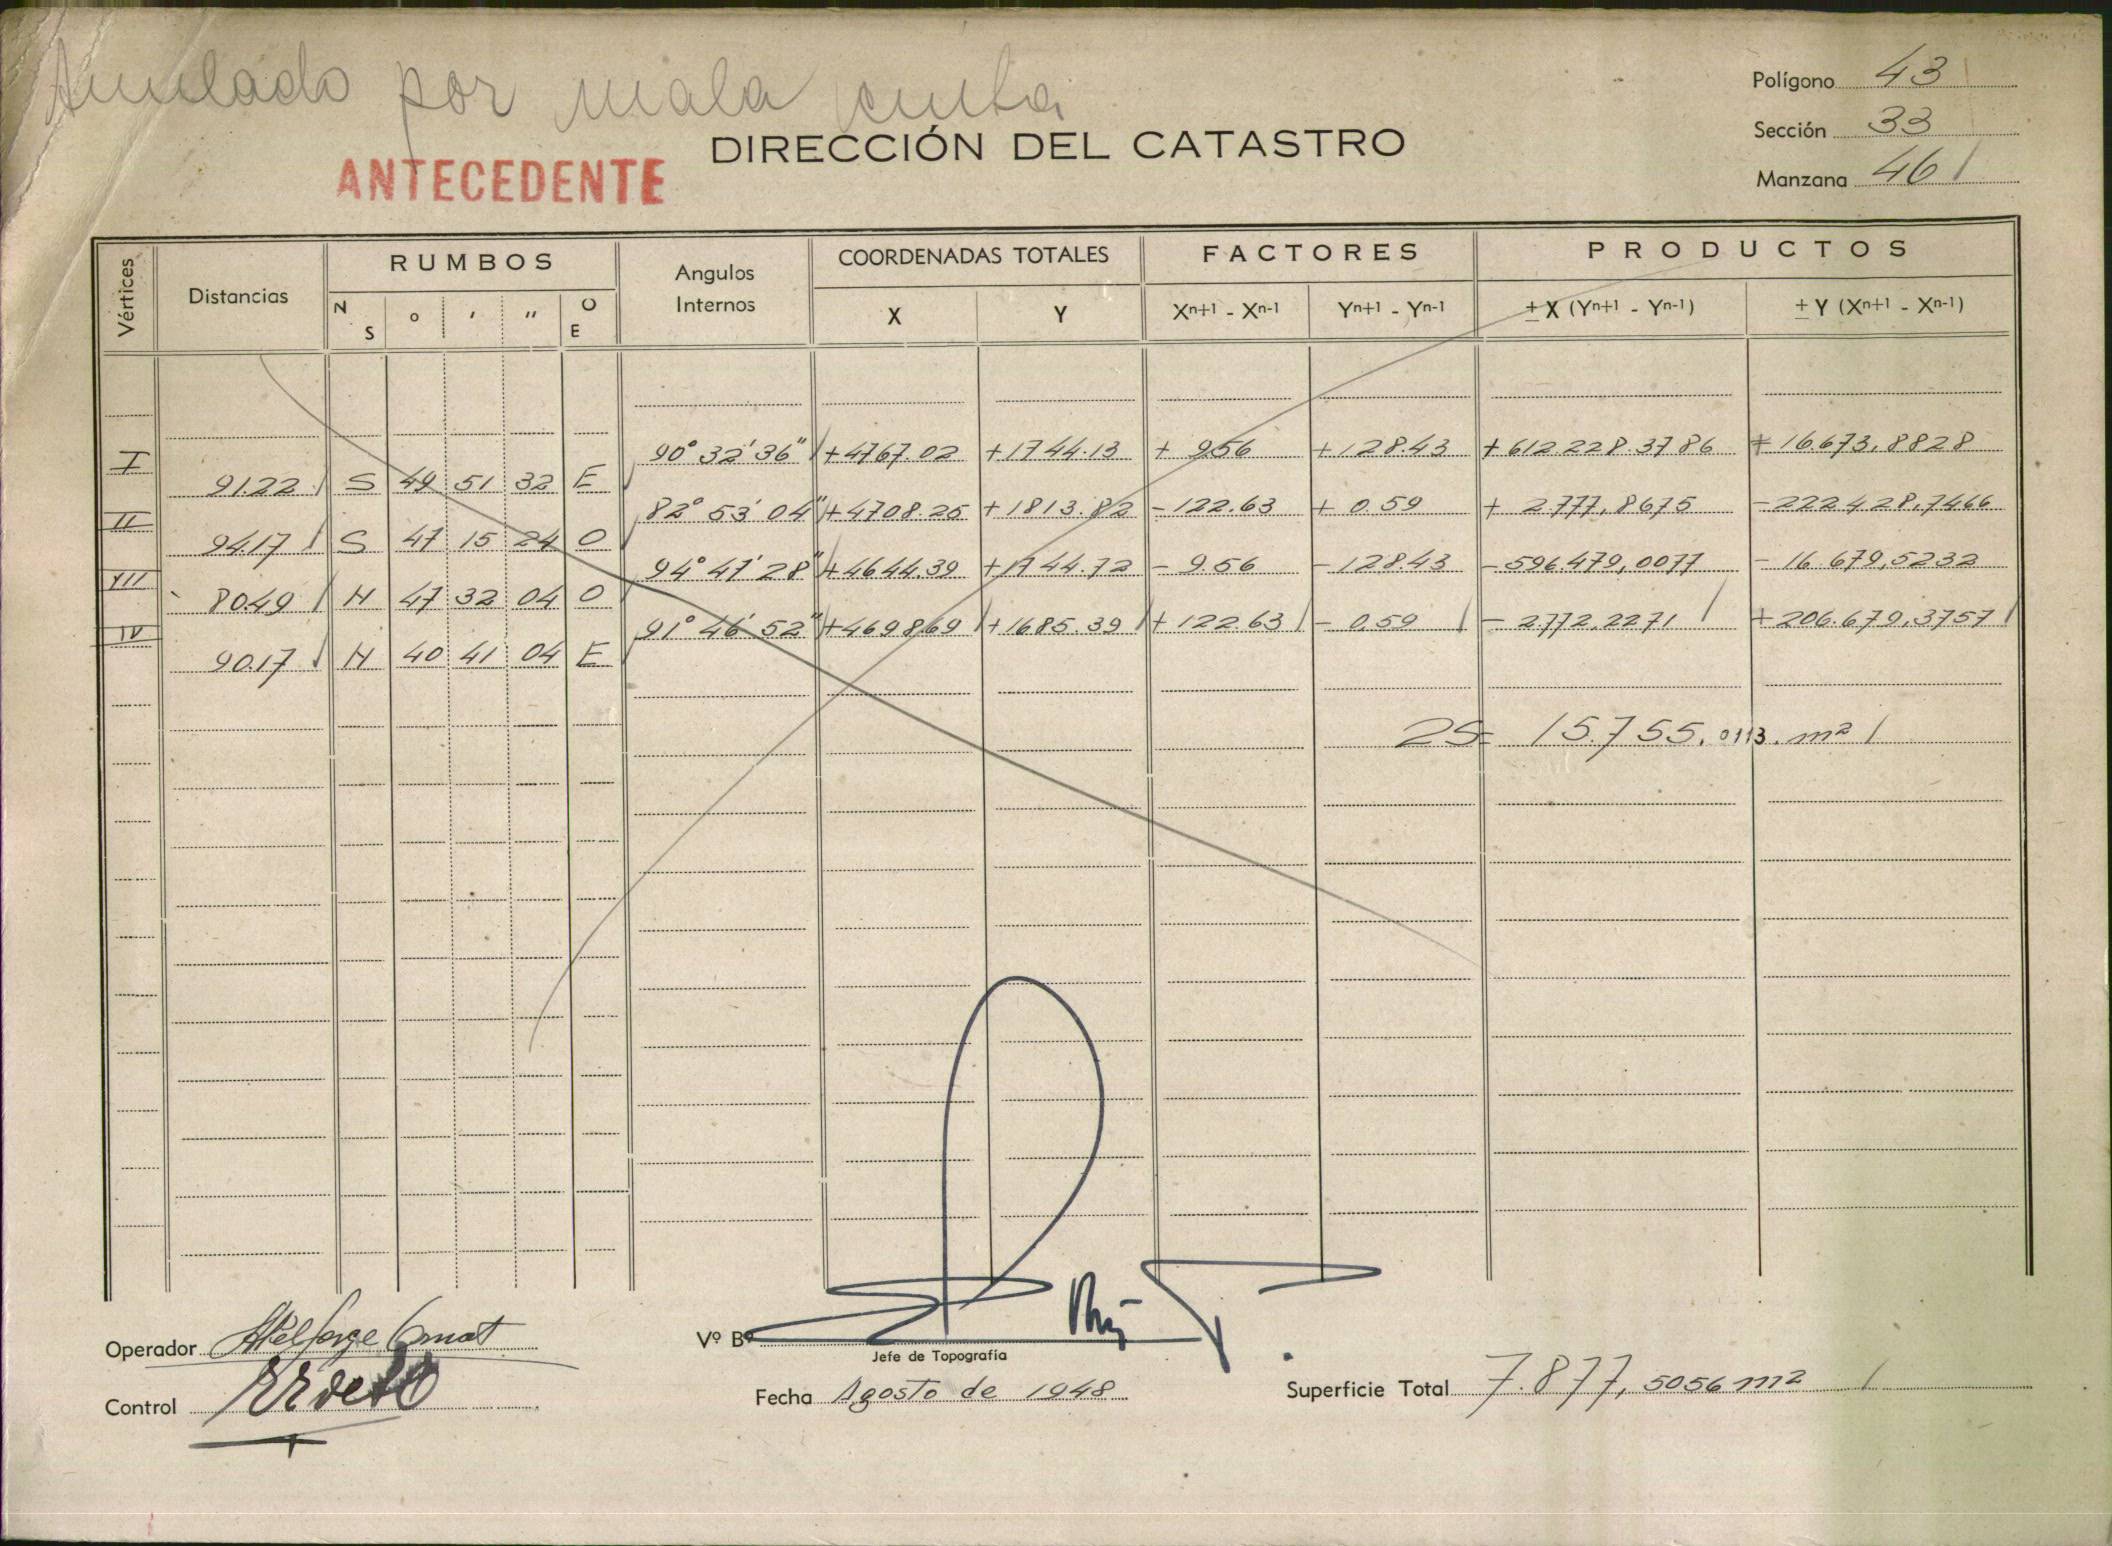 Anulado por mala cinta
DIRECCIÓN DEL CATASTRO
ANTECEDENTE
Polígono 43
Sección 33
Manzana 46
Vértices
Distancias
RUMBOS
N S ° ' " O E
Angulos Internos
COORDENADAS TOTALES
X Y
FACTORES
Xn+1 - Xn-1 Yn+1 - Yn-1
PRODUCTOS
± X (Yn+1 - Yn-1) ± Y (Xn+1 - Xn-1)
I 90° 32' 36" +4767.02 +1744.13 + 9.56 +128.43 +612.228.3786 + 16.673,8828
91.22 S 49 51 32 E
II 82° 53' 04" +4708.26 +1813.82 -122.63 + 0.59 + 2.777,8675 -222.428,7466
94.17 S 47 15 24 O
III 94° 47' 28" +4644.39 +1744.72 - 9.56 -128.43 -596.479,0077 - 16.679,5232
80.49 N 47 32 04 O
IV 91° 46' 52" +4698.69 +1685.39 +122.63 - 0.59 - 2.772,2271 +206.679,3757
90.17 N 40 41 04 E
2S= 15.755,0113 m²
Operador
Vº Bº
Jefe de Topografía
Control
Fecha Agosto de 1948
Superficie Total 7.877,5056 m²